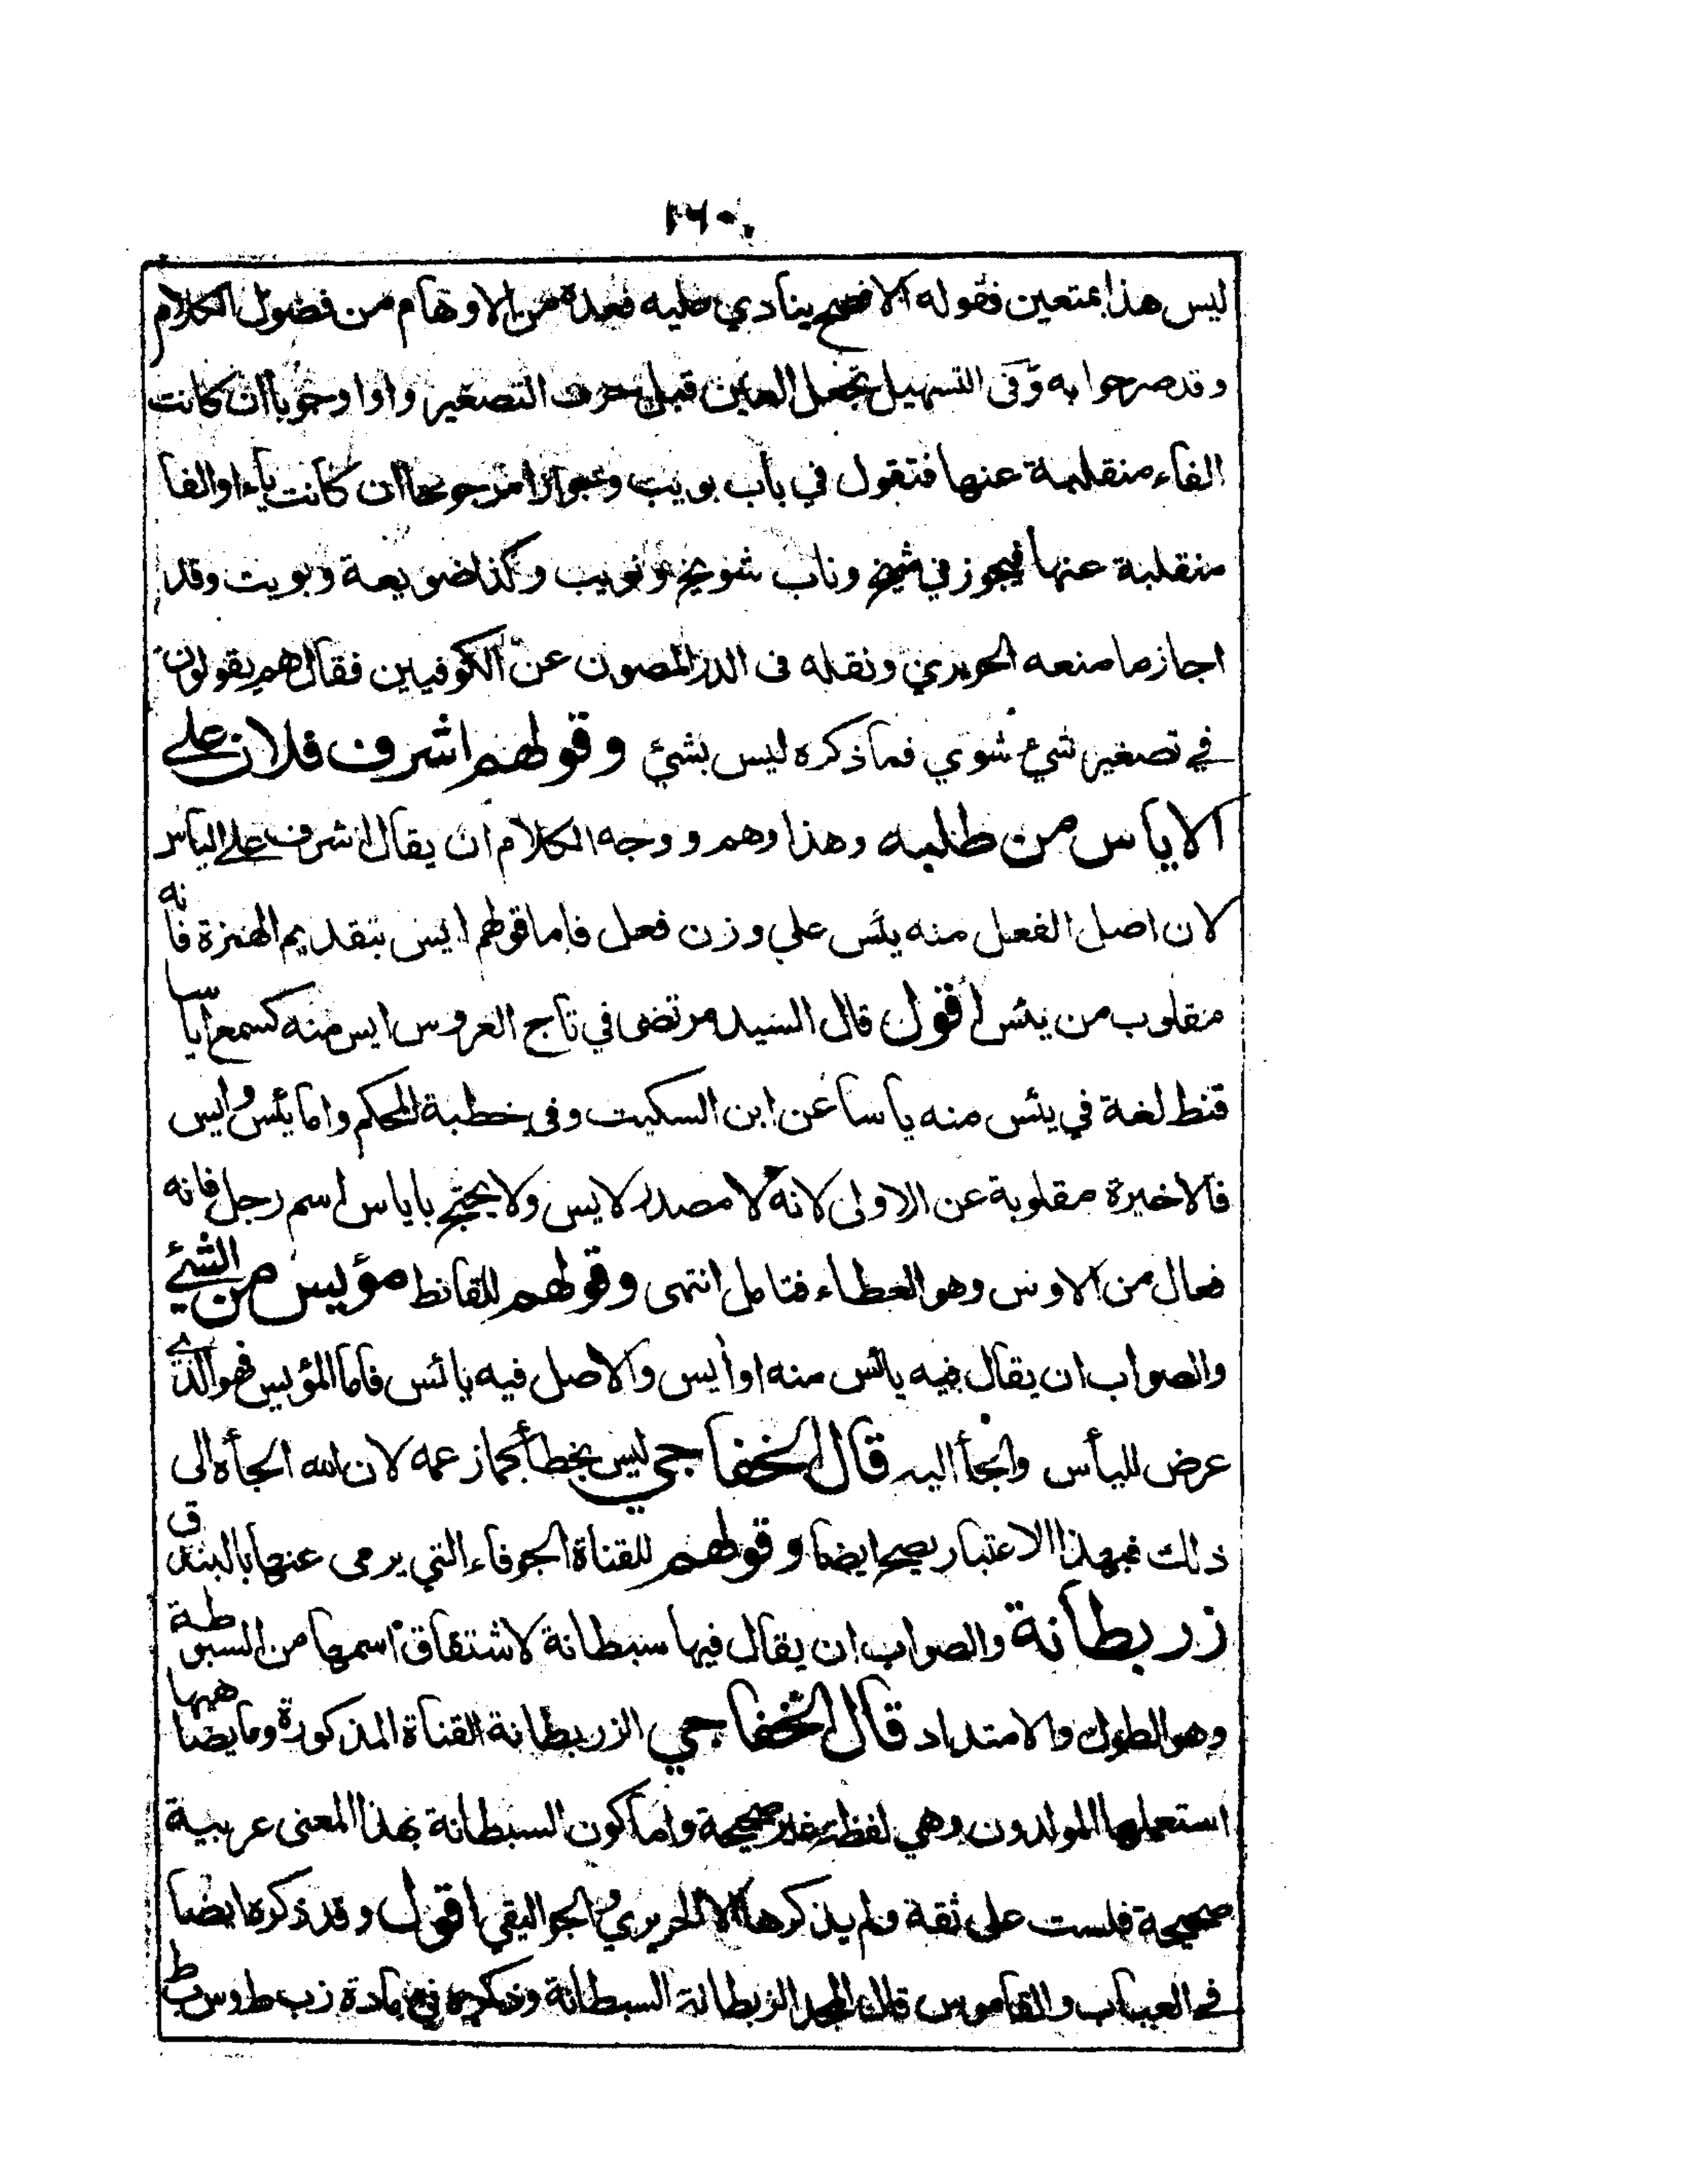 ١٦٠
ليس هذا بمتعين فقوله الافصح ينادي عليه فعده من الاوهام من فضول الكلام
وقد صرحوا به وفى التسهيل تجعل العين قبل حرف التصغير واوا وجوبا ان كانت
الفاء منقلبة عنها فتقول في باب بويب وجوازا مرجوحا ان كانت ياء او الفا
منقلبة عنها فيجوز في شيخ وناب شويخ ونويب وكذا ضويعة وبويت وقد
اجاز ما منعه الحريري ونقله فى الدر المصون عن الكوفيين فقال هم يقولون
في تصغير شيء شوي فما ذكره ليس بشئ وقولهم اشرف فلان على
الاياس من طلبه وهذا وهم ووجه الكلام ان يقال اشرف على الياس
لان اصل الفعل منه يئس على وزن فعل فاما قولهم ايس بتقديم الهمزة فانه
مقلوب من يئس اقول قال السيد مرتضى في تاج العروس ايس منه كسمع اياسا
قنط لغة في يئس منه ياسا عن ابن السكيت وفى خطبة المحكم واما يئس وايس
فالاخيرة مقلوبة عن الاولى لانه لا مصدر لايس ولا يحتج باياس اسم رجل فانه
فعال من الاوس وهو العطاء فتامل انتهى وقولهم للقانط مؤيس من الشئ
والصواب ان يقال فيه يائس منه او أيس والاصل فيه يائس فاما المؤيس فهو الذي
عرض لليأس والجأ اليه قال الخفاجي ليس بخطأ كما زعمه لان الله الجأه الى
ذلك فبهذا الاعتبار يصح ايضا وقولهم للقناة الجوفاء التي يرمى عنها بالبندق
زربطانة والصواب ان يقال فيها سبطانة لاشتقاق اسمها من السبوطة
وهو الطول والامتداد قال الخفاجي الزربطانة القناة المذكورة وما يضاهيها
استعملها المولدون وهي لفظة غير صحيحة واما كون السبطانة بهذا المعنى عربية
صحيحة فلست على ثقة ولم يذكرها الا الحريري والجواليقي اقول وقد ذكره ايضا
في العباب والقاموس قال المجد الزبطانة السبطانة وذكره في مادة زب ط وس ب ط